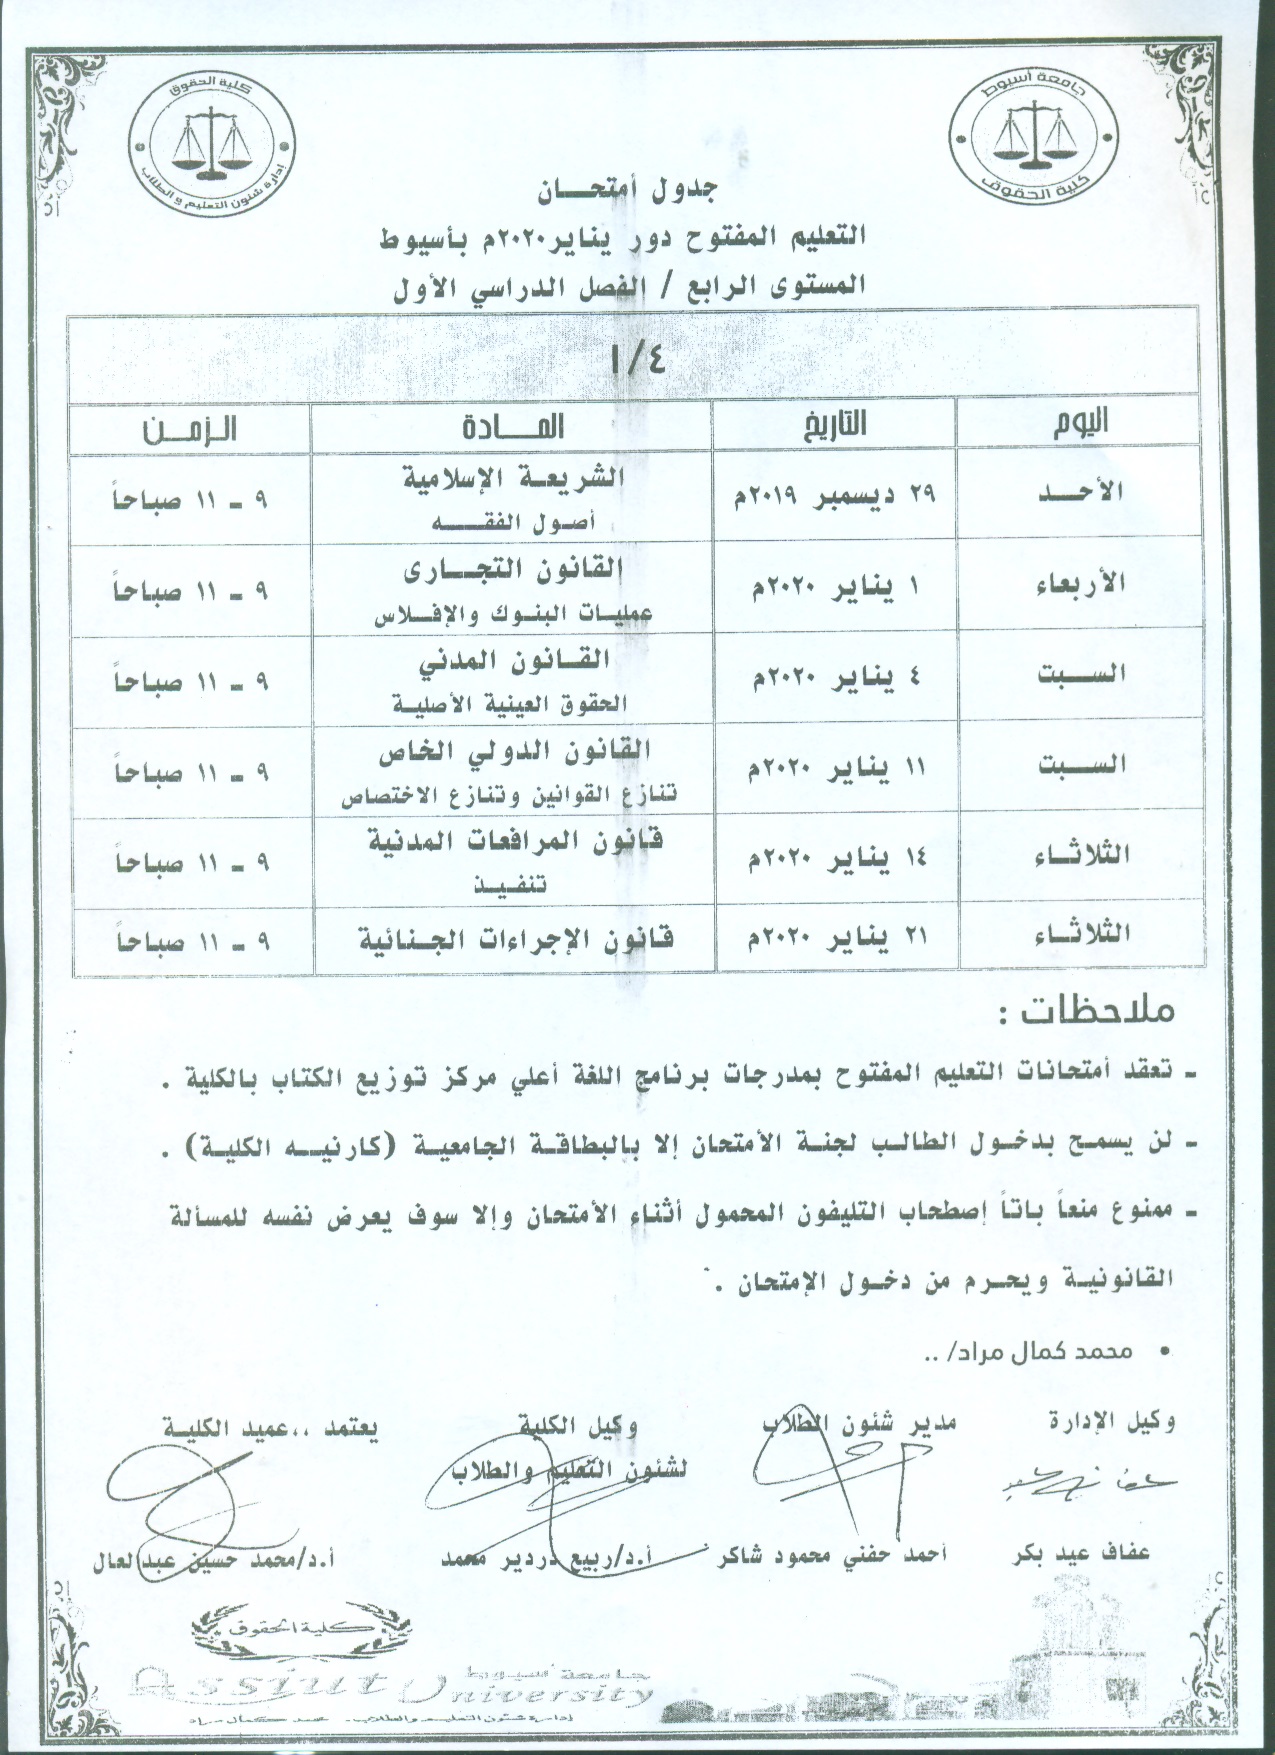 جامعة أسيوط
كلية الحقوق
كلية الحقوق
إدارة شئون التعليم و الطلاب
جدول أمتحـــان
التعليم المفتوح دور يناير٢٠٢٠م بأسيوط
المستوى الرابع / الفصل الدراسي الأول
١/٤
اليوم التاريخ المـــادة الـزمــن
الأحــد ٢٩ ديسمبر ٢٠١٩م الشريعـة الإسلامية ٩ ـ ١١ صباحاً
أصـول الفقـــه
الأربعاء ١ يناير ٢٠٢٠م القانون التجــارى ٩ ـ ١١ صباحاً
عمليـات البنـوك والإفــلاس
السـبت ٤ يناير ٢٠٢٠م القــانون المدني ٩ ـ ١١ صباحاً
الحقوق العينية الأصليـة
السـبت ١١ يناير ٢٠٢٠م القانون الدولي الخاص ٩ ـ ١١ صباحاً
تنازع القوانين وتنازع الاختصاص
الثلاثـاء ١٤ يناير ٢٠٢٠م قـانون المرافعات المدنية ٩ ـ ١١ صباحاً
تنفـيـذ
الثلاثـاء ٢١ يناير ٢٠٢٠م قـانون الإجراءات الجـنائية ٩ ـ ١١ صباحاً
ملاحظات :
ـ تعقد أمتحانات التعليم المفتوح بمدرجات برنامج اللغة أعلي مركز توزيع الكتاب بالكلية .
ـ لن يسمـح بدخـول الطالـب لجنـة الأمتحـان إلا بالبطاقـة الجامعيـة (كارنيـه الكليـة) .
ـ ممنوع منعاً باتاً إصطحاب التليفون المحمول أثناء الأمتحان وإلا سوف يعرض نفسه للمسألة
القانونيـة ويحـرم من دخـول الإمتحان .
• محمد كمال مراد/ ..
وكيل الإدارة مدير شئون الطلاب وكيل الكلية يعتمد ،، عميد الكليـة
لشئون التعليم والطلاب
عفاف عيد بكر أحمد حفني محمود شاكر أ.د/ربيع دردير محمد أ.د/محمد حسين عبدالعال
كلية الحقوق
جامعة أسيوط
Assiut University
إدارة شئون التعليم والطلاب - محمد كمال مراد